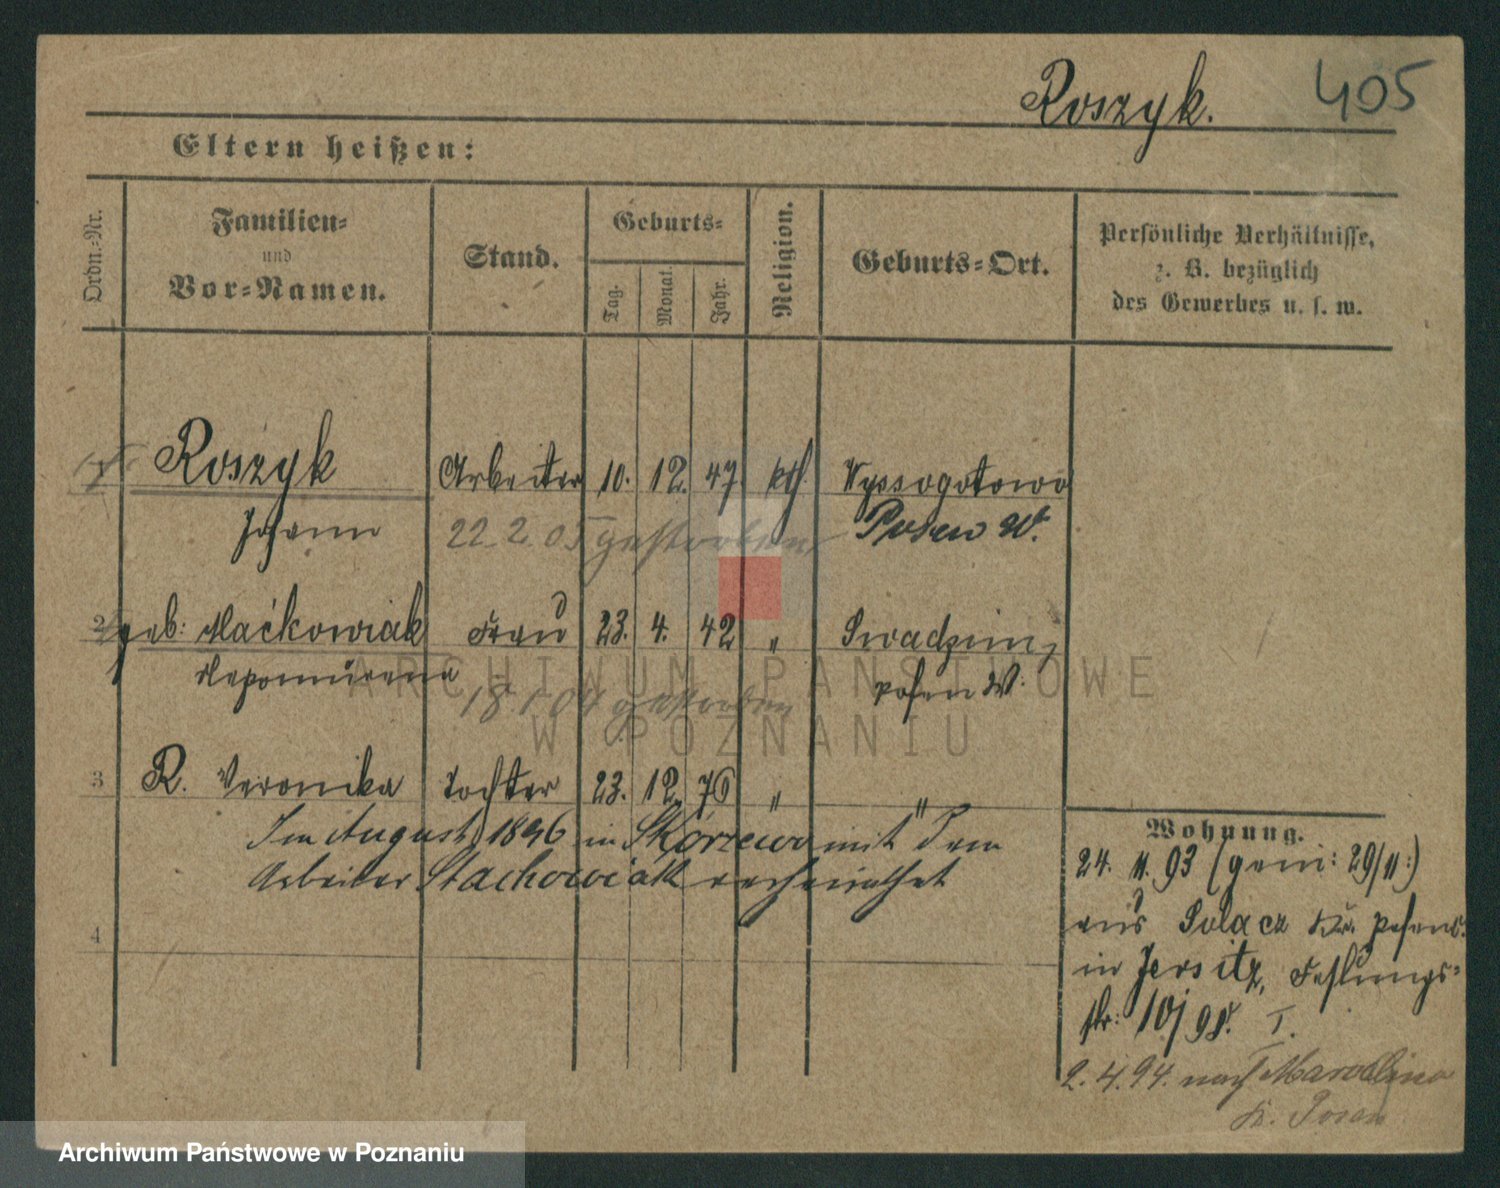 Roszyk. 405
Eltern heißen:
Ordn.-Nr.
Familien-
und
Vor-Namen.
Stand.
Geburts-
Tag.
Monat.
Jahr.
Religion.
Geburts-Ort.
Persönliche Verhältnisse,
z. B. bezüglich
des Gewerbes u. s. w.
Roszyk Arbeiter 10. 12. 47. kth. Wyssogotowo
Johann 22. 2. 05 gestorben Posen W.
2 geb: Maćkowiak Frau 23. 4. 42 " Swadzim,
Nepomucena 18. 1. 04 gestorben Posen W.
3 R. Veronika Tochter 23. 12. 76 " "
Im August 1896 in Skórzewo mit dem
Arbeiter Stachowiak verheirathet
4
Wohnung.
24. 11. 93 (gem: 29/11:)
aus Solacz Kr. Posen
in Jersitz, Festungs-
str: 10/98. I.
2. 4. 94. nach Marcellino
Kr. Posen
ARCHIWUM PAŃSTWOWE
W POZNANIU
Archiwum Państwowe w Poznaniu